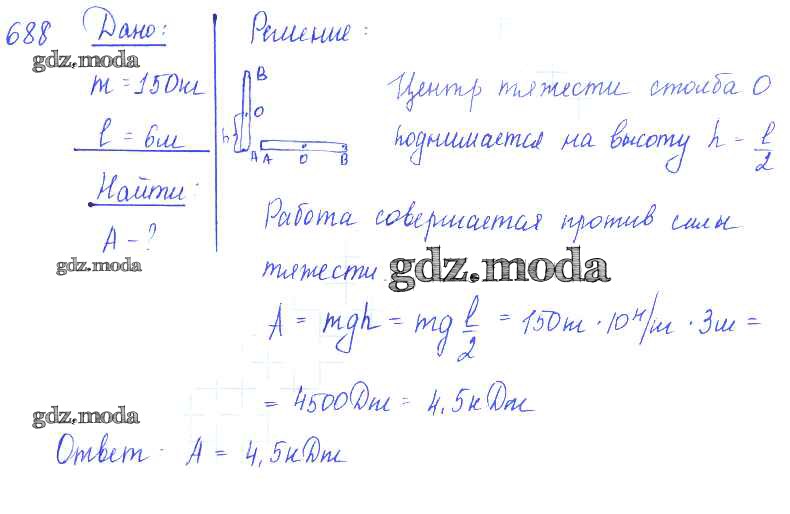 688 Дано:
gdz.moda
m = 150кг
l = 6м
Найти:
A - ?
gdz.moda
Решение:
B
O
h
A
A O B
Центр тяжести столба O
поднимается на высоту h - l/2
Работа совершается против силы
тяжести.
gdz.moda
A = mgh = mg l/2 = 150кг · 10 Н/кг · 3м =
= 4500Дж = 4,5кДж
gdz.moda
Ответ · A = 4,5кДж